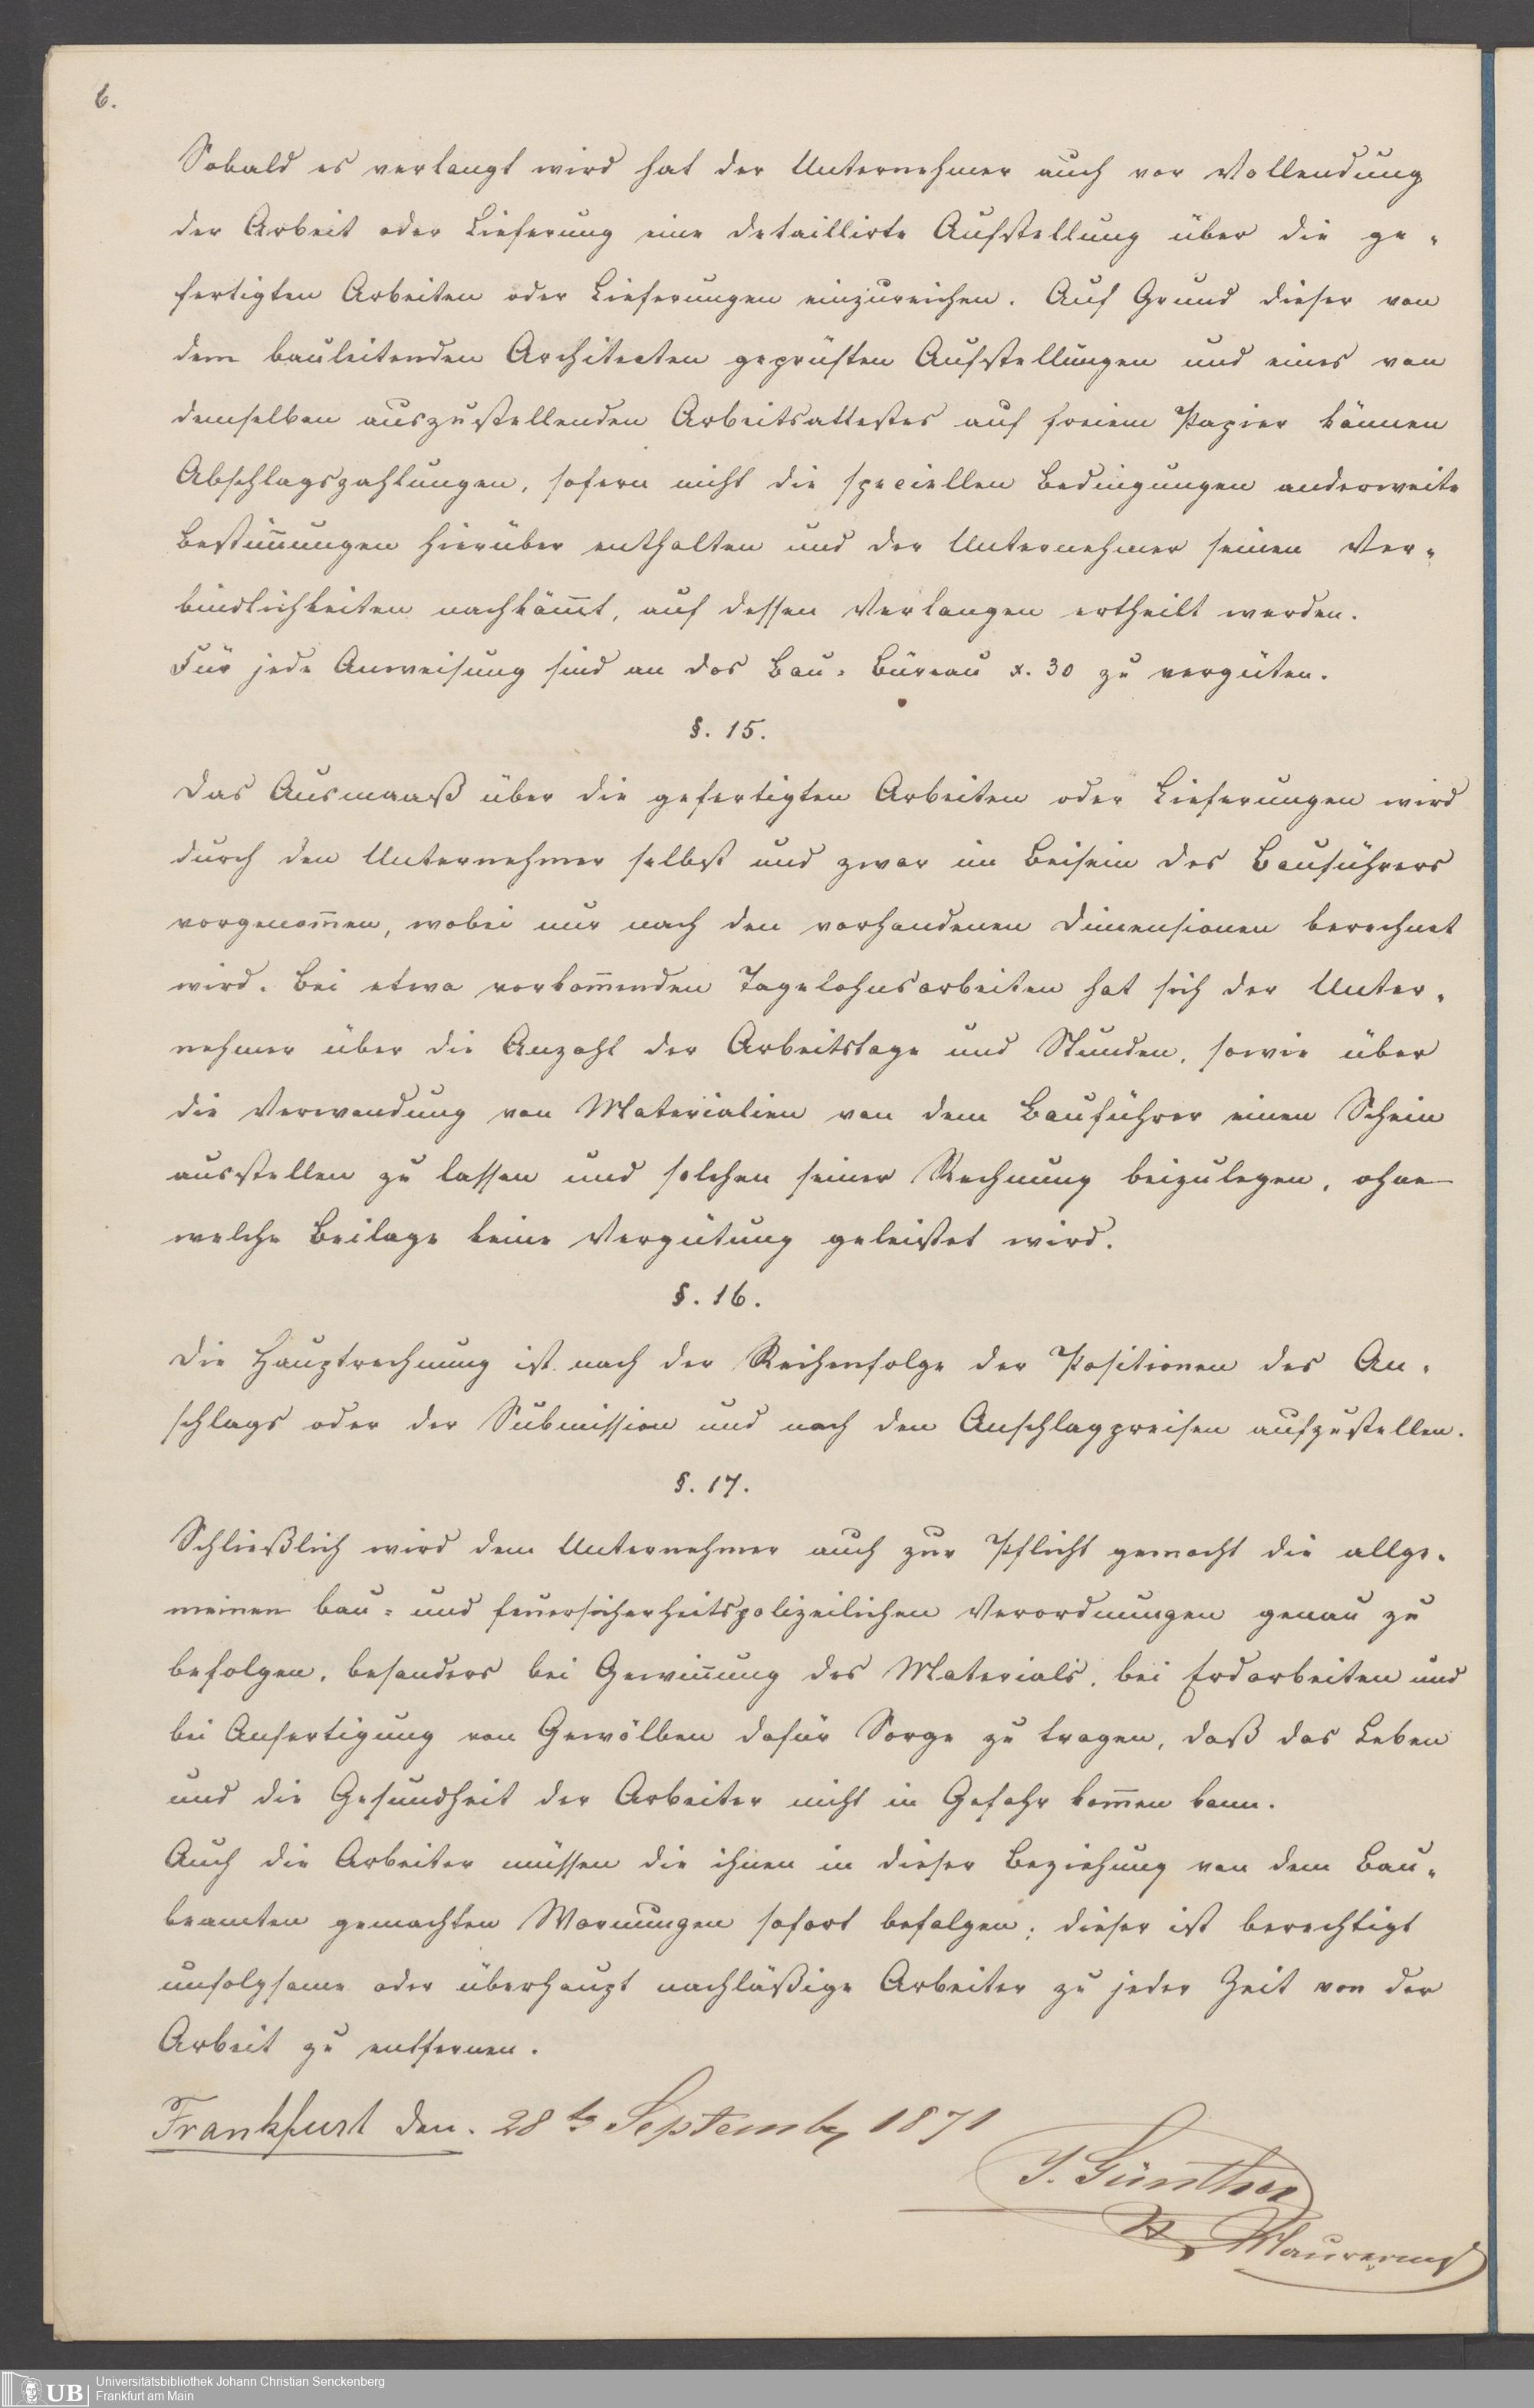 6.
Sobald es verlangt wird hat der Unternehmer auch vor Vollendung
der Arbeit oder Lieferung eine detaillirte Aufstellung über die ge-
fertigten Arbeiten oder Lieferungen einzureichen. Auf Grund dieser von
dem bauleitenden Architecten geprüften Aufstellungen und eines von
demselben auszustellenden Arbeitsattestes auf freiem Papier können
Abschlagszahlungen, sofern nicht die speciellen Bedingungen anderweite
Bestim̅ungen hierüber enthalten und der Unternehmer seinen Ver-
bindlichkeiten nachköm̅t, auf dessen Verlangen ertheilt werden.
Für jede Anweisung sind an das Bau-Büreau x. 30 zu vergüten.
§. 15.
Das Ausmaaß über die gefertigten Arbeiten oder Lieferungen wird
durch den Unternehmer selbst und zwar im Beisein des Bauführers
vorgenom̅en, wobei nur nach den vorhandenen Dimensionen berechnet
wird. Bei etwa vorkom̅enden Tagelohnsarbeiten hat sich der Unter-
nehmer über die Anzahl der Arbeitstage und Stunden, sowie über
die Verwendung von Materialien von dem Bauführer einen Schein
ausstellen zu lassen und solchen seiner Rechnung beizulegen, ohne
welche Beilage keine Vergütung geleistet wird.
§. 16.
Die Hauptrechnung ist nach der Reihenfolge der Positionen des An-
schlags oder der Submission und nach den Anschlagpreisen aufzustellen.
§. 17.
Schließlich wird dem Unternehmer auch zur Pflicht gemacht die allge-
meinen bau- und feuersicherheitspolizeilichen Verordnungen genau zu
befolgen, besonders bei Gewin̅ung des Materials, bei Erdarbeiten und
bei Anfertigung von Gewölben dafür Sorge zu tragen, daß das Leben
und die Gesundheit der Arbeiter nicht in Gefahr kom̅en kann.
Auch die Arbeiter müssen die ihnen in dieser Beziehung von dem Bau-
beamten gemachten Warnungen sofort befolgen; dieser ist berechtigt
unfolgsame oder überhaupt nachläßige Arbeiter zu jeder Zeit von der
Arbeit zu entfernen.
Frankfurt den. 28ts September 1871
J. Günther
Maurermst
UB Universitätsbibliothek Johann Christian Senckenberg
Frankfurt am Main